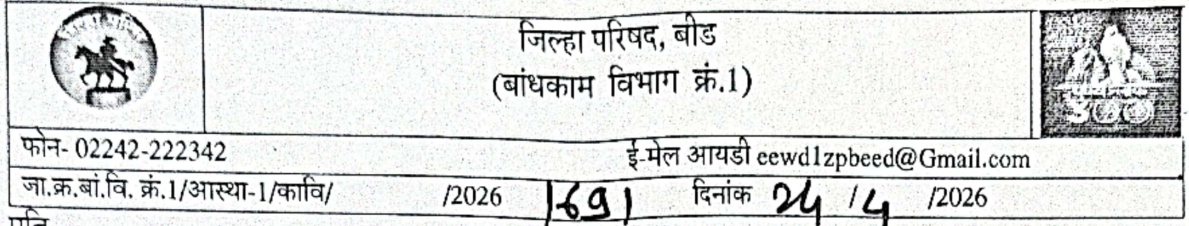 जिल्हा परिषद, बीड
(बांधकाम विभाग क्रं.1)
फोन- 02242-222342 ई-मेल आयडी eewd1zpbeed@Gmail.com
जा.क्र.बां.वि. क्रं.1/आस्था-1/कावि/ /2026 1691 दिनांक 24/4 /2026